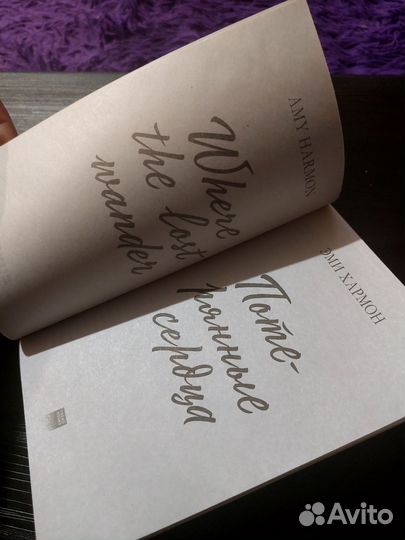 AMY HARMON
Where
the lost
wander
ЭМИ ХАРМОН
Поте-
рянные
сердца
Avito